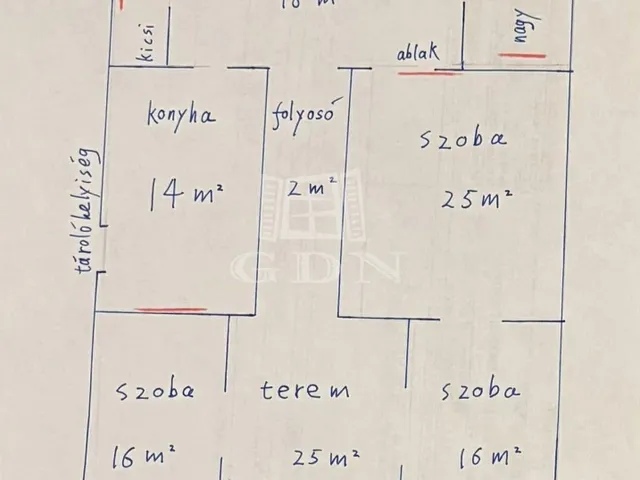 kicsi
ablak
nagy
konyha
14 m²
folyosó
2 m²
szoba
25 m²
tárolóhelyiség
GDN
szoba
16 m²
terem
25 m²
szoba
16 m²